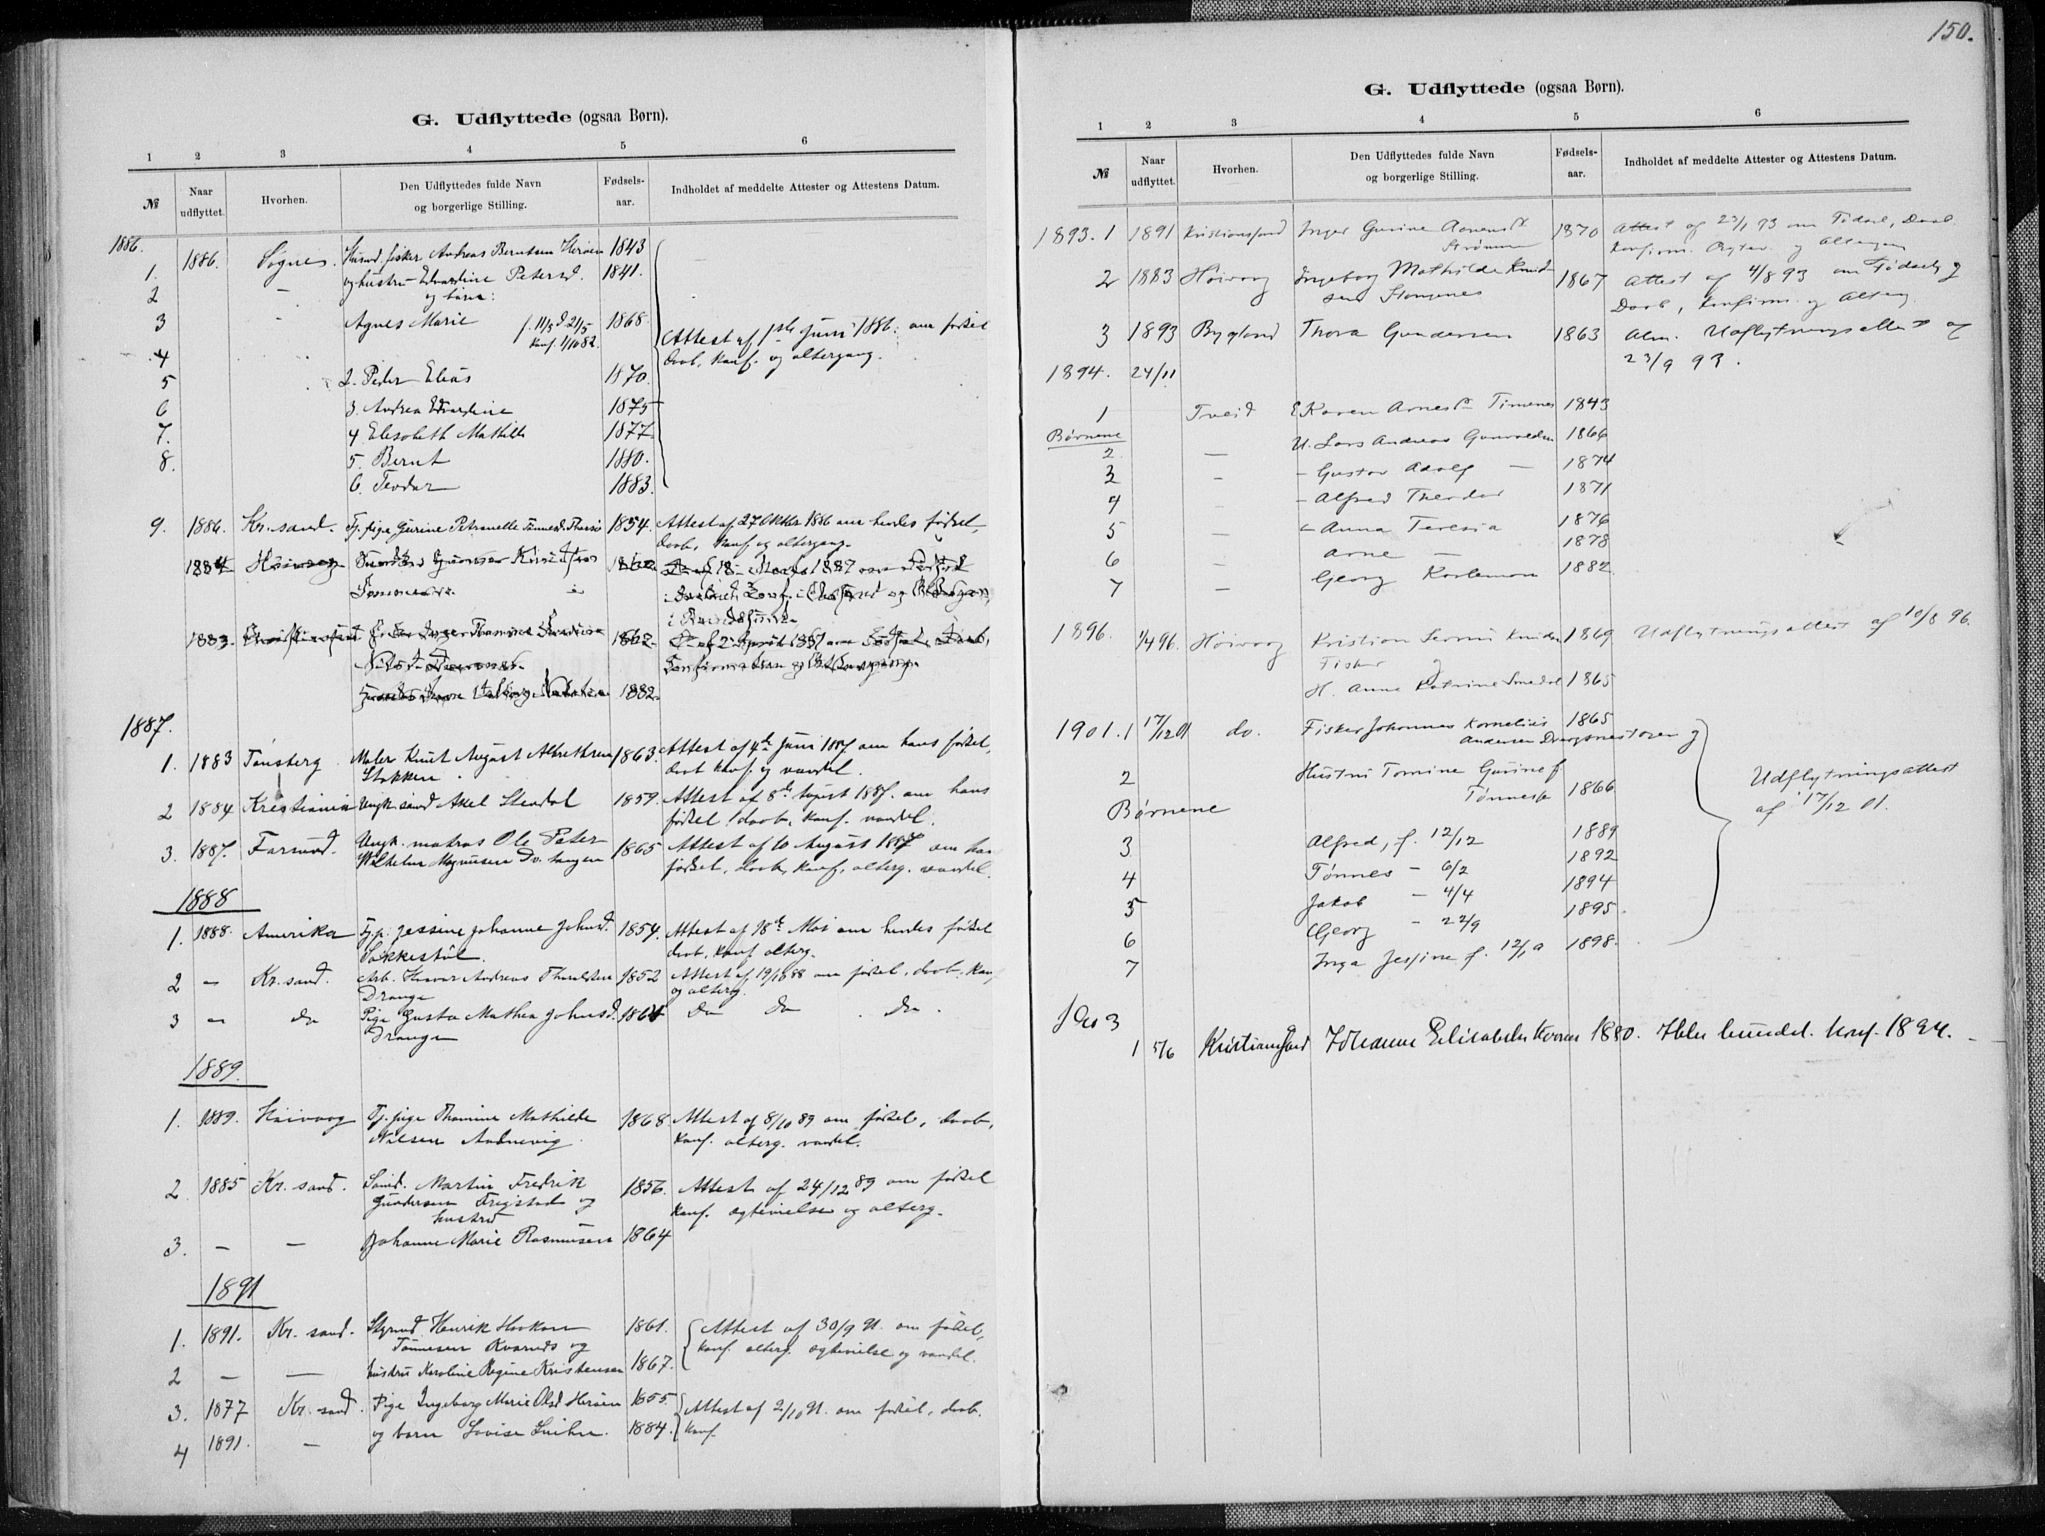 G. Udflyttede (ogsaa Børn).
1 2 3 4 5 6
№ Naar udflyttet. Hvorhen. Den Udflyttedes fulde Navn og borgerlige Stilling. Fødsels-aar. Indholdet af meddelte Attester og Attestens Datum.
1886.
1. 1886. Sogne. Husmd. fisker Andreas Berntsen Herøen 1843
2 - og hustru Edvardine Petersd. 1841.
og børn:
3 - Agnes Marie f. 11/3 d. 21/5 1868. Attest af 1ste Juni 1886. om fødsel
konf. 1/10 82. daab, konf. og altergang.
4
5 2. Peder Elias 1870.
6 3. Andrea Edvardine 1875
7. 4 Elisabeth Mathilde 1877
8. 5. Bernt 1880.
6. Teodor 1883.
9. 1886. Kr.sand. Tj. pige Gurine Petronelle Tønnesd. 1854. Attest af 27 Oktbr 1886 om hendes fødsel,
daab, konf. og altergang.
1884 Høivaag 1862 18 Marts 1887
1883. Christiansand 1862. af 2 April 1887 om Fødsel, Daab,
Confirmation og Altergang.
1882.
1887.
1. 1883 Tønsberg Maler Knut August Albrethsen 1863. Attest af 4de Juni 1887 om hans fødsel,
Stokken. daab konf. og vandel.
2 1884 Kristiania Ungk. sømd Axel Stendal 1859. Attest af 8de August 1887. om hans
fødsel, daab, konf. vandel.
3. 1887. Farsund. Ungk. matros Ole Peter 1865 Attest af 10 August 1887 om hans
Wilhelm Magnusen fødsel, daab, konf, alterg. vandel.
1888
1. 1888. Amerika Tj.p. Jessine Johanne Johnsd. 1854. Attest af 18de Mai om hendes fødsel
daab, konf alterg.
2 - Kr. sand. Arb. Andreas 1852 Attest af 19/10 88 om fødsel, daab, konf
Drange og alterg.
3 - do Pige Gusta Mathea Johnsd. 1864 Do Do . Do .
Drange
1889.
1. 1889. Høivaag Tj. pige Thomine Mathilde 1868. Attest af 8/10 89 om fødsel, daab,
Nilsen konf. alterg. vandel.
2 1885 Kr. sand. Sømd. Martin Fredrik 1856. Attest af 24/12 89 om fødsel
Gundersen Frigstad og konf. ægtevielse og alterg.
hustru
3. - - Johanne Marie Rasmussen 1864
1891
1. 1891. Kr. sand. Styrmd Henrik Haakon 1861. Attest af 30/9 91. om fødsel,
Tønnesen Kvarnes og konf. alterg. ægtevielse og vandel.
2 - - hustru Karoline Regine Kristensen 1867.
3. 1877 Kr. sand. Pige Ingeborg Marie Olsd Herøen 1855. Attest af 2/10 91. om fødsel, daab.
4 1891. - og barn Lovise 1884. konf.
150.
G. Udflyttede (ogsaa Børn).
1 2 3 4 5 6
№ Naar udflyttet. Hvorhen. Den Udflyttedes fulde Navn og borgerlige Stilling. Fødsels-aar. Indholdet af meddelte Attester og Attestens Datum.
1893. 1 1891 Kristianssand Inger Gurine Aanensd. 1870 Attest af 23/1 93 om Fødsel, Daab
Strømme konfirm. Ægtev. og Altergang
2 1883 Høivaag Ingeborg Mathilde Knud- 1867 Attest af 4/8 93 om Fødsel og
sen Daab, konfirm. og Alterg.
3 1893 Bygland Thora Gundersen 1863 Alm. Udflytningsattest af
23/9 93.
1894. 24/11
1 Tveid E Karen Arnesd. Timenes 1843
Børnene
2. - U. Lars Andreas Gunvaldsen 1866
3 - - Gustav Adolf - 1874
4 - Alfred Theodor 1871
5 - - Anna Teresia 1876
6 - Arne - 1878
7 - Georg Karleman 1882
1896. 1/4 96. Høivaag Kristian Severin Knudsen 1869 Udflytningsattest af 10/8 96.
Fisker og
H. Anna Katrine 1865
1901. 1 17/12 01 do. Fisker Johannes Kornelius 1865
Andersen og
2 Hustru Tomine Gurine f. Udflytningsattest
Tønnesen 1866 af 17/12 01.
Børnene
3 Alfred, f. 12/12 1889
4 Tønnes - 6/2 1892
5 Jakob - 4/4 1894
6 Georg - 22/9 1895.
7 Inga Jessine f. 12/10 1898.
1903
1 5/6 Kristianssand Johanne Elisabeth 1880. konf. 1894.